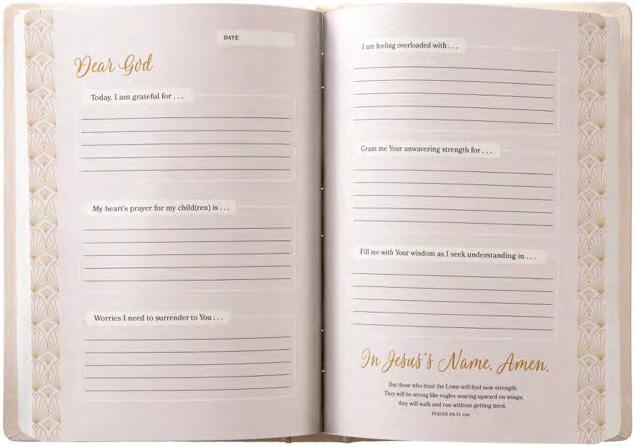 DATE
Dear God
Today, I am grateful for . . .
My heart's prayer for my child(ren) is . . .
Worries I need to surrender to You . . .
I am feeling overloaded with . . .
Grant me Your unwavering strength for . . .
Fill me with Your wisdom as I seek understanding in . . .
In Jesus's Name, Amen.
But those who trust the LORD will find new strength.
They will be strong like eagles soaring upward on wings;
they will walk and run without getting tired.
ISAIAH 40:31 CEV